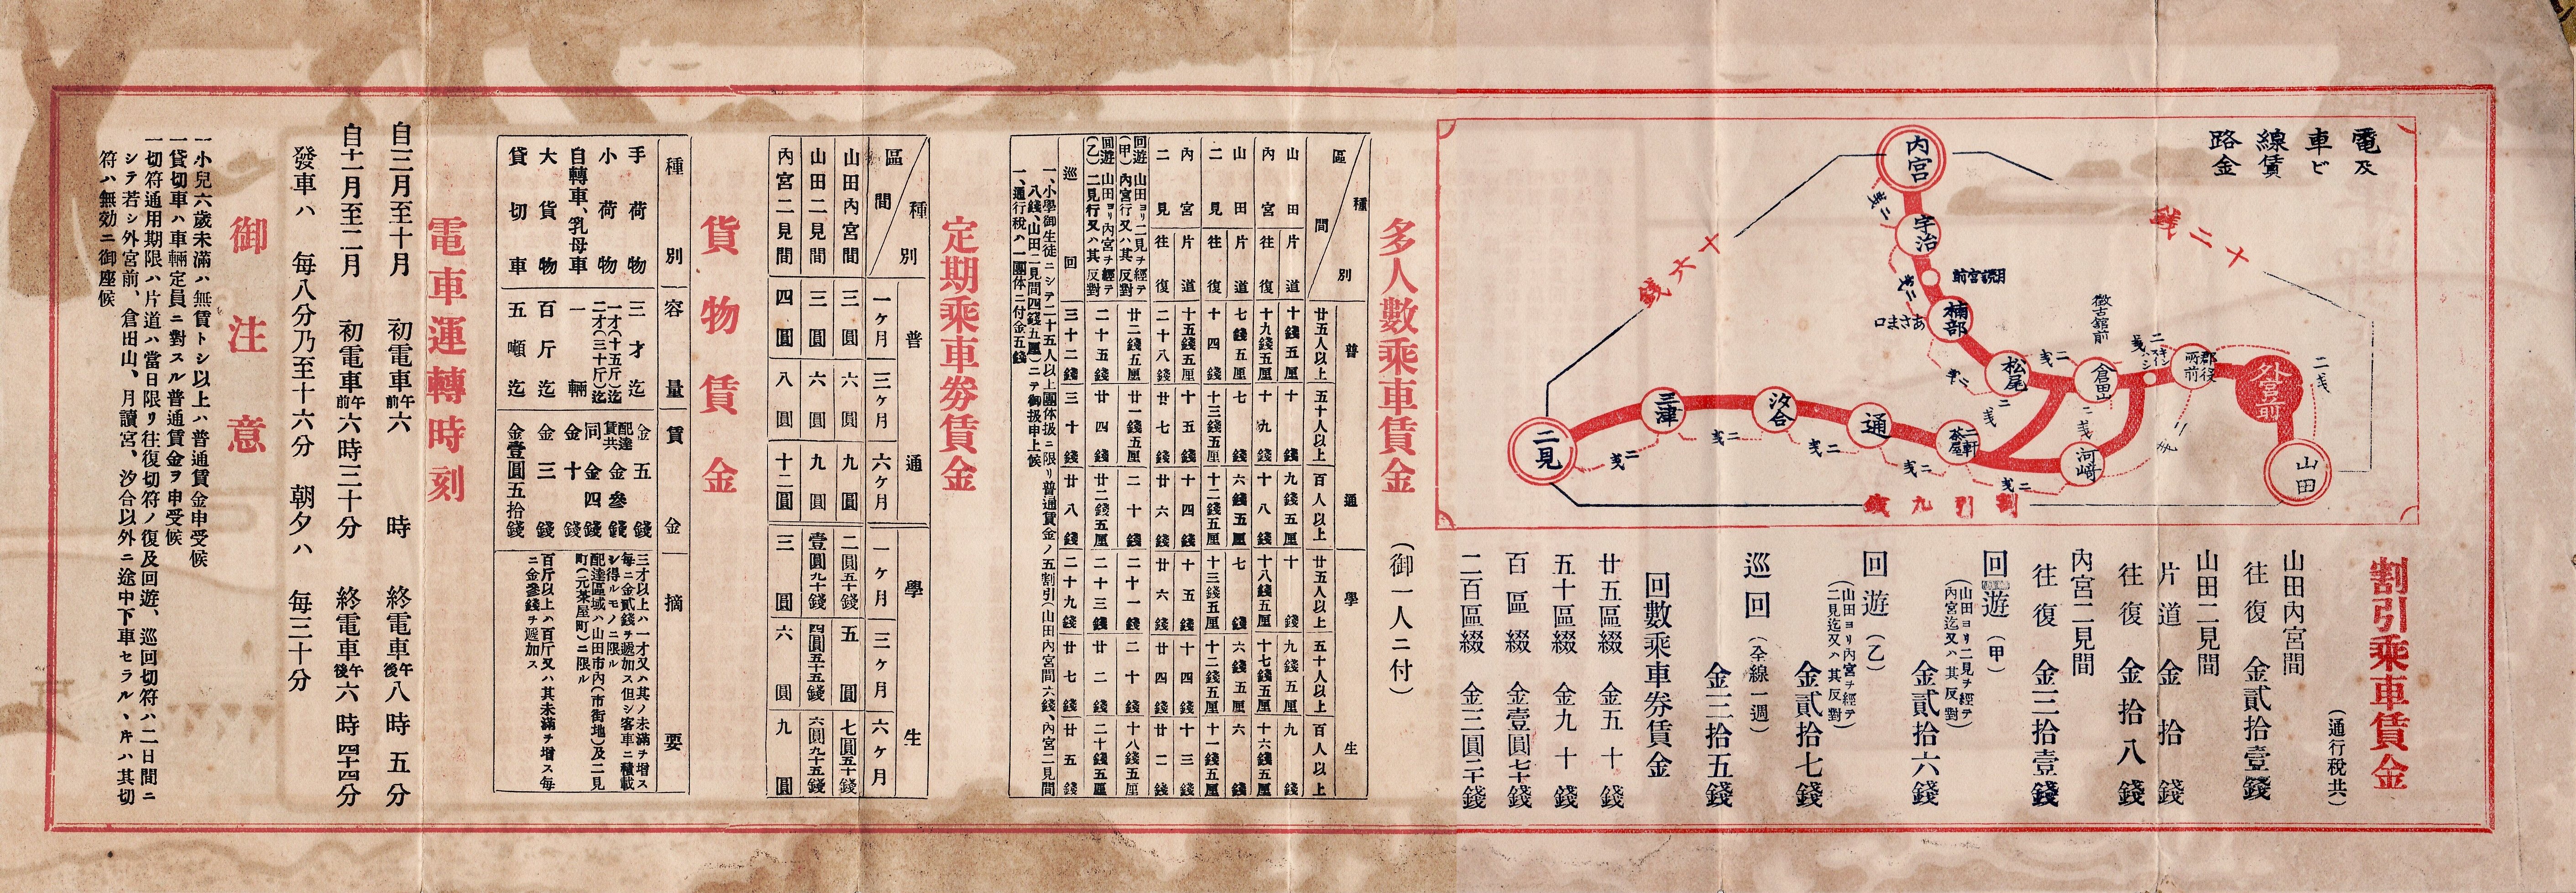 電車及ビ
線路賃金
十二銭
十六銭
割引九銭
内宮
宇治
月讀宮前
楠部
あさまロ
松尾
徴古館前
倉田山
二軒茶屋
河﨑
郡役所前
外宮前
山田
通
汐合
三津
二見
割引乘車賃金
(通行税共)
山田內宮間
往復 金貳拾壹錢
山田二見間
片道 金拾錢
往復 金拾八錢
內宮二見間
往復 金三拾壹錢
回遊(甲)
(山田ヨリ二見ヲ經テ
內宮迄又ハ其反對)
金貳拾六錢
回遊(乙)
(山田ヨリ內宮ヲ經テ
二見迄又ハ其反對)
金貳拾七錢
巡回(全線一週)
金三拾五錢
回數乘車券賃金
廿五區綴 金五十錢
五十區綴 金九十錢
百區綴 金壹圓七十錢
二百區綴 金三圓二十錢
多人數乘車賃金
(御一人ニ付)
種別 區間
普通 廿五人以上 五十人以上 百人以上
學生 廿五人以上 五十人以上 百人以上
山田片道 十錢五厘 十錢 九錢五厘 十錢 九錢五厘 九錢
內宮往復 十九錢五厘 十九錢 十八錢 十八錢五厘 十七錢五厘 十六錢五厘
山田片道 七錢五厘 七錢 六錢五厘 七錢 六錢五厘 六錢
二見往復 十四錢 十三錢五厘 十二錢五厘 十三錢五厘 十二錢五厘 十一錢五厘
內宮片道 十五錢五厘 十五錢 十四錢 十五錢 十四錢 十三錢
二見往復 二十八錢 廿七錢 廿六錢 廿六錢 廿四錢 廿二錢
回遊(甲) 山田ヨリ二見ヲ經テ內宮行又ハ其反對 廿二錢五厘 廿一錢五厘 二十錢 二十一錢 二十錢 十八錢五厘
回遊(乙) 山田ヨリ內宮ヲ經テ二見行又ハ其反對 二十五錢 廿四錢 廿二錢五厘 二十三錢 廿二錢 二十錢五厘
巡回 三十二錢 三十錢 廿八錢 二十九錢 廿七錢 廿五錢
一、小學御生徒ニシテ二十五人以上團体扱ニ限リ普通賃金ノ五割引(山田內宮間六錢、內宮二見間
八錢、山田二見間四錢五厘)ニテ御扱申上候
一、通行税ハ一團体ニ付金五錢
定期乘車券賃金
種別 區間
普通 一ケ月 三ケ月 六ケ月
學生 一ケ月 三ケ月 六ケ月
山田內宮間 三圓 六圓 九圓 二圓五十錢 五圓 七圓五十錢
山田二見間 三圓 六圓 九圓 壹圓九十錢 四圓五十五錢 六圓九十五錢
內宮二見間 四圓 八圓 十二圓 三圓 六圓 九圓
貨物賃金
種別 容量 賃金 摘要
手荷物 三才迄 金五錢
小荷物 一才(十五斤)迄 配達賃共 金參錢
二才(三十斤)迄 同 金四錢
自轉車、乳母車 一輛 金十錢
大貨物 百斤迄 金三錢
貸切車 五噸迄 金壹圓五拾錢
三才以上ハ一才又ハ其ノ未滿ヲ增ス
每ニ金貳錢ヲ遞加ス但シ客車ニ積載
シ得ルモノニ限ル
配達區域ハ山田市內(市街地)及二見
町(元茶屋町)ニ限ル
百斤以上ハ百斤又ハ其未滿ヲ增ス每
ニ金參錢ヲ遞加ス
電車運轉時刻
自三月至十月 初電車午前六時 終電車午後八時五分
自十一月至二月 初電車午前六時三十分 終電車午後六時四十四分
發車ハ 每八分乃至十六分 朝夕ハ 每三十分
御注意
一小兒六歲未滿ハ無賃トシ以上ハ普通賃金申受候
一貸切車ハ車輛定員ニ對スル普通賃金ヲ申受候
一切符通用期限ハ片道ハ當日限リ往復切符ノ復及回遊、巡回切符ハ二日間ニ
シテ若シ外宮前、倉田山、月讀宮、汐合以外ニ途中下車セラルヽ片ハ其切
符ハ無効ニ御座候